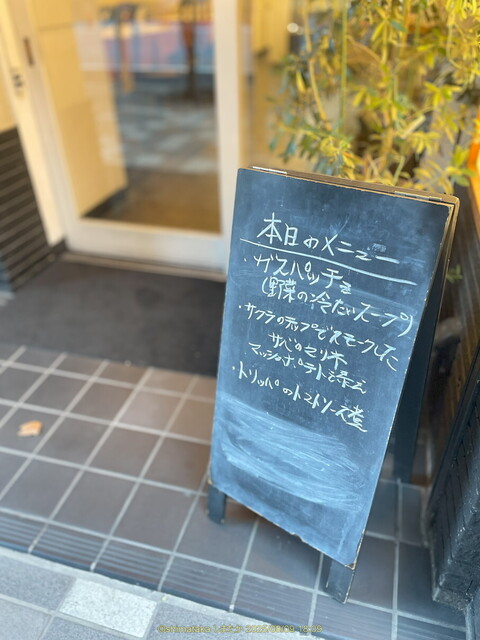 本日のメニュー
・ガスパッチョ
(野菜の冷たいスープ)
・サクラのチップでスモークした
サバのマリネ
マッシュポテト添え
・トリッパのトマトソース煮